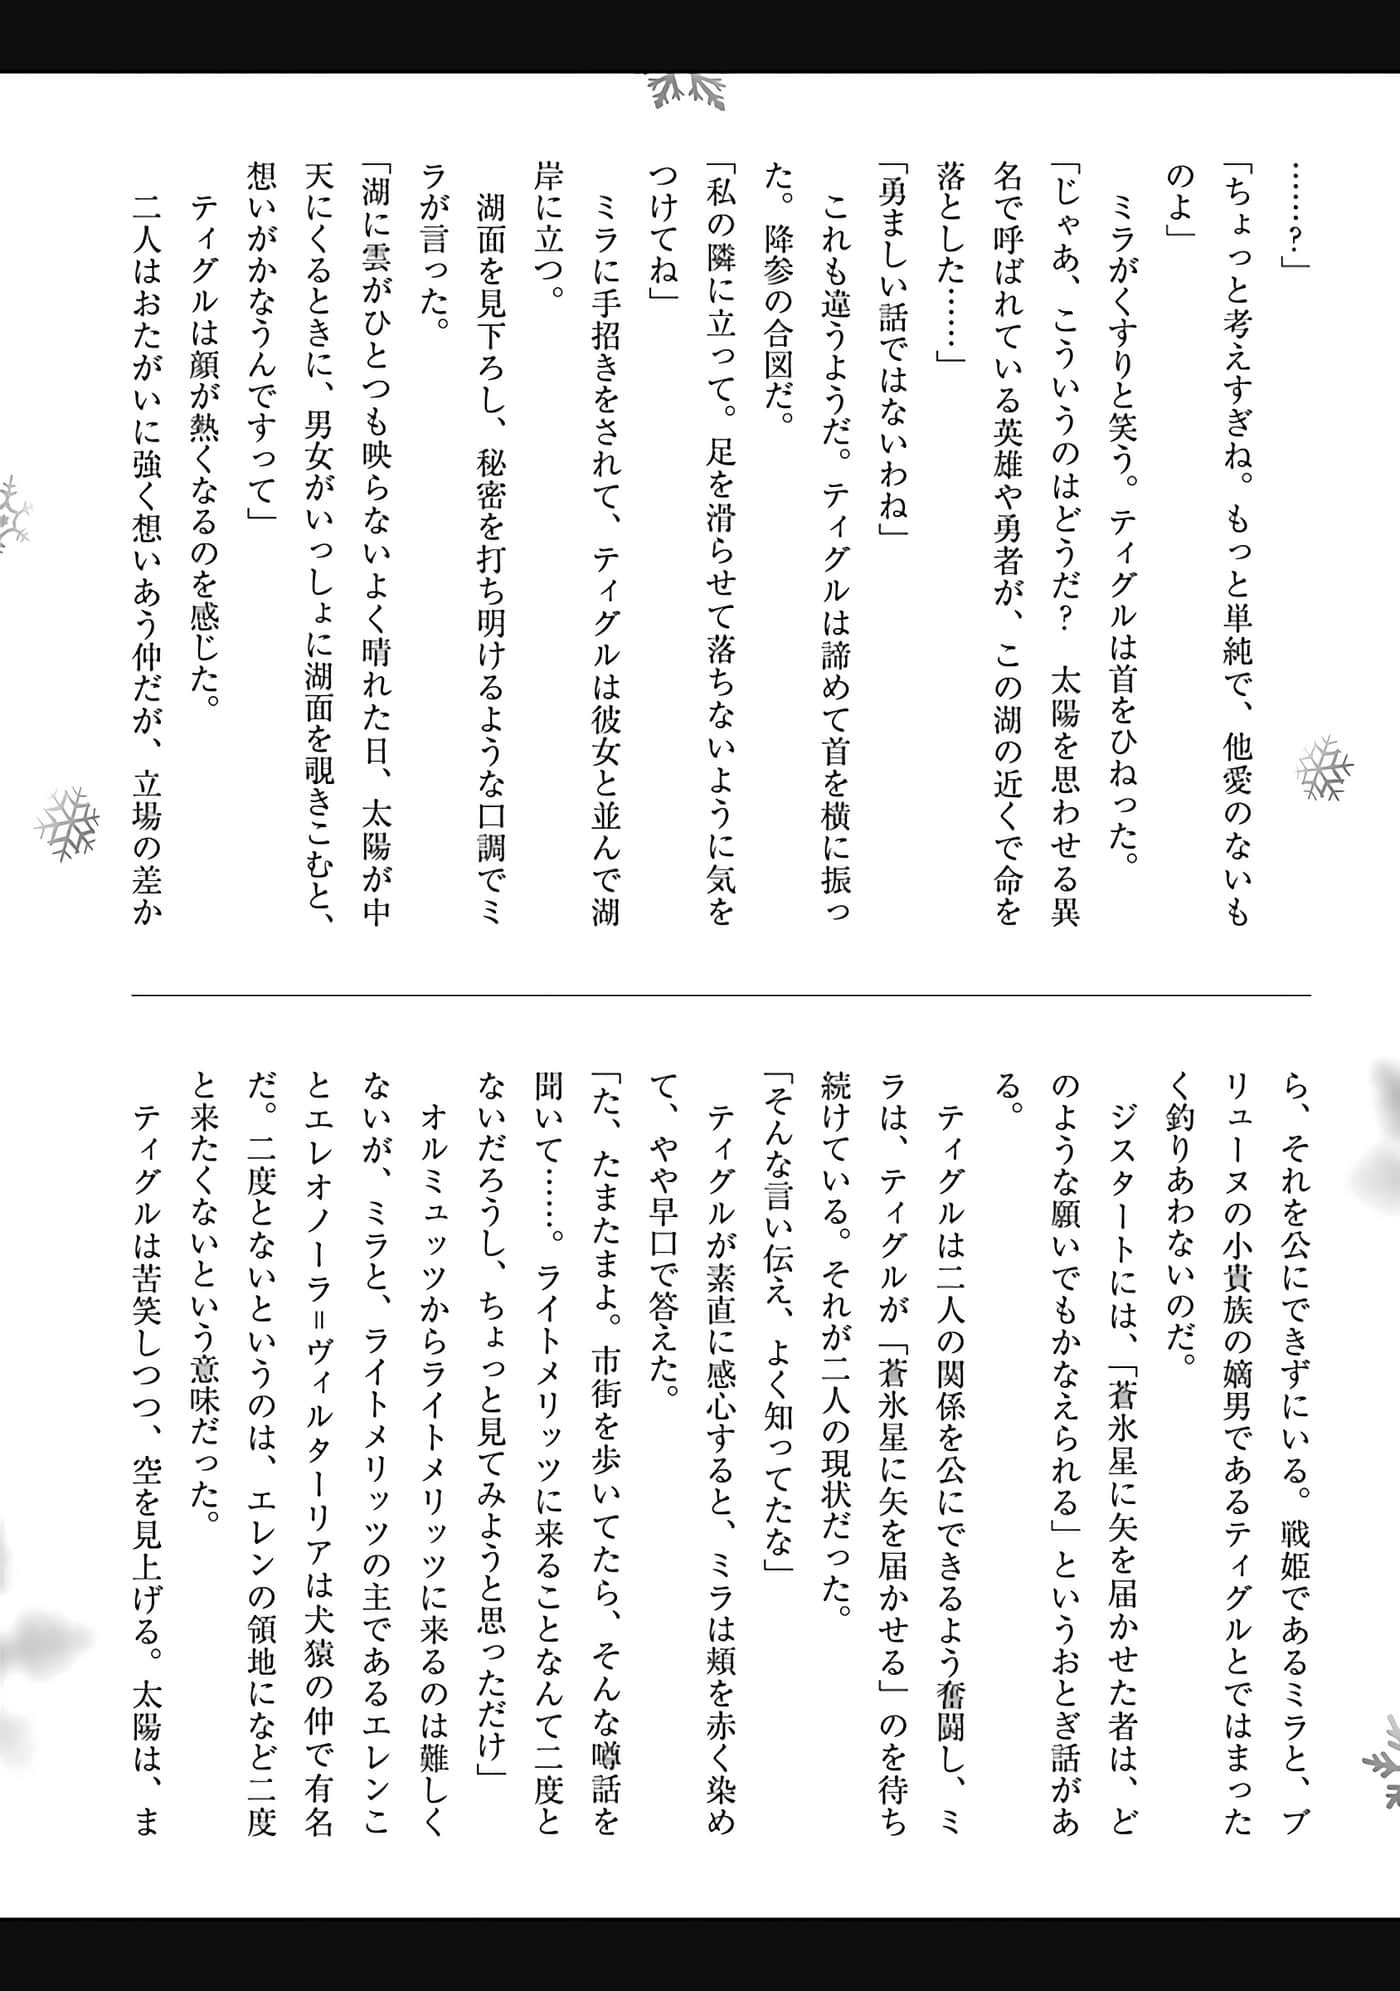 ……?」
「ちょっと考えすぎね。もっと単純で、他愛のないも
のよ」
　ミラがくすりと笑う。ティグルは首をひねった。
「じゃあ、こういうのはどうだ?　太陽を思わせる異
名で呼ばれている英雄や勇者が、この湖の近くで命を
落とした……」
「勇ましい話ではないわね」
　これも違うようだ。ティグルは諦めて首を横に振っ
た。降参の合図だ。
「私の隣に立って。足を滑らせて落ちないように気を
つけてね」
　ミラに手招きをされて、ティグルは彼女と並んで湖
岸に立つ。
　湖面を見下ろし、秘密を打ち明けるような口調でミ
ラが言った。
「湖に雲がひとつも映らないよく晴れた日、太陽が中
天にくるときに、男女がいっしょに湖面を覗きこむと、
想いがかなうんですって」
　ティグルは顔が熱くなるのを感じた。
　二人はおたがいに強く想いあう仲だが、立場の差か
ら、それを公にできずにいる。戦姫であるミラと、ブ
リューヌの小貴族の嫡男であるティグルとではまった
く釣りあわないのだ。
　ジスタートには、「蒼氷星に矢を届かせた者は、ど
のような願いでもかなえられる」というおとぎ話があ
る。
　ティグルは二人の関係を公にできるよう奮闘し、ミ
ラは、ティグルが「蒼氷星に矢を届かせる」のを待ち
続けている。それが二人の現状だった。
「そんな言い伝え、よく知ってたな」
　ティグルが素直に感心すると、ミラは頬を赤く染め
て、やや早口で答えた。
「た、たまたまよ。市街を歩いてたら、そんな噂話を
聞いて……。ライトメリッツに来ることなんて二度と
ないだろうし、ちょっと見てみようと思っただけ」
　オルミュッツからライトメリッツに来るのは難しく
ないが、ミラと、ライトメリッツの主であるエレンこ
とエレオノーラ＝ヴィルターリアは犬猿の仲で有名
だ。二度とないというのは、エレンの領地になど二度
と来たくないという意味だった。
　ティグルは苦笑しつつ、空を見上げる。太陽は、ま